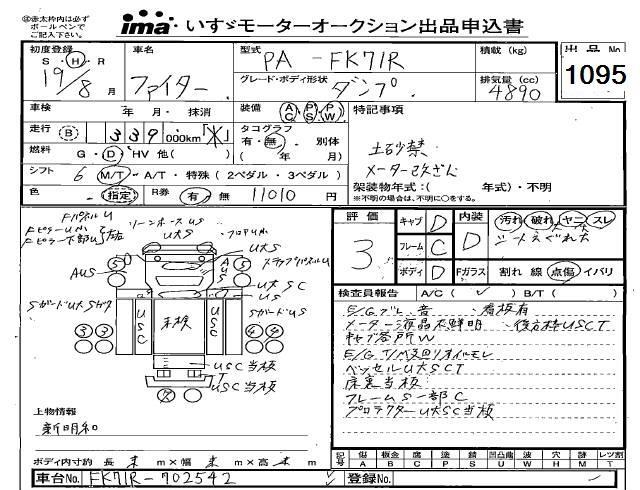 ㊟赤太枠内は必ず
ボールペンで
ご記入下さい。
ima いすゞモーターオークション出品申込書
初度登録 S・H・R 19/8月
車名 ファイター
型式 PA-FK71R
グレード・ボディ形状 ダンプ
積載(kg)
排気量(cc) 4890
出品No. 1095
車検 年 月・抹消
装備 AC・PS・PW
特記事項
走行 B 339,000km
タコグラフ 有・無・別体
( 年 月)
土砂禁
メーター改ざん
燃料 G・D・HV 他( )
シフト 6 M/T・A/T・特殊(2ペダル・3ペダル)
架装物年式:( 年式)・不明
※不明の場合は、不明に○をする。
色 指定 R券 有・無 11010円
評価 3
キャブ D
フレーム C
ボディ D
内装 D
汚れ 破れ ヤニ スレ
シートえぐれ大
Fガラス 割れ 線 点傷 イバリ
FパネルU
U大S
フロアUM
AUS
AUS
U大SC
US
SガードU大Sカケ
SガードUS
USC
未検
USC
USC当板
T
検査員報告 A/C( ✓ ) B/T( )
E/Gブレ、音、看板有
メーター液晶不鮮明・後方枠USCT
キャブ各所W
E/G T/M廻りオイルモレ
ベッセルU大SCT
床裏当板
フレームS一部C
プロテクターU大SC当板
上物情報
新明和
ボディ内寸約 長 未 m×幅 未 m×高 未 m
記号 傷 A 板金 B 腐 C 塗 P 錆 S 凹凸亀 U 波 W 穴 H 時 M レツ割 T
車台No. FK71R-702542
登録No.